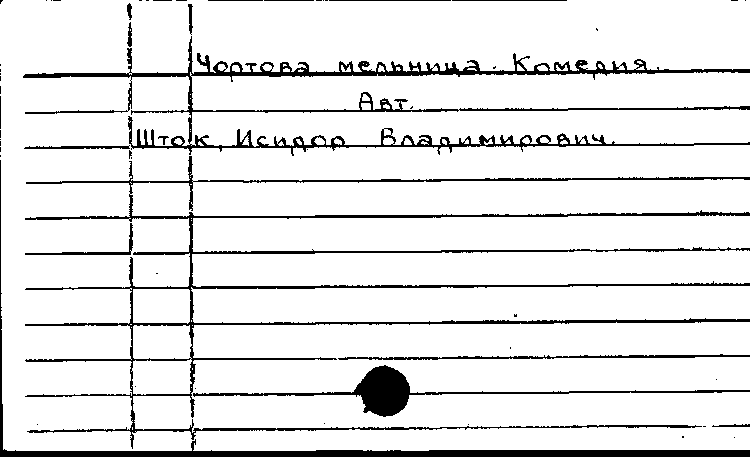 Чортова мельница. Комедия.
Авт.
Шток, Исидор Владимирович.